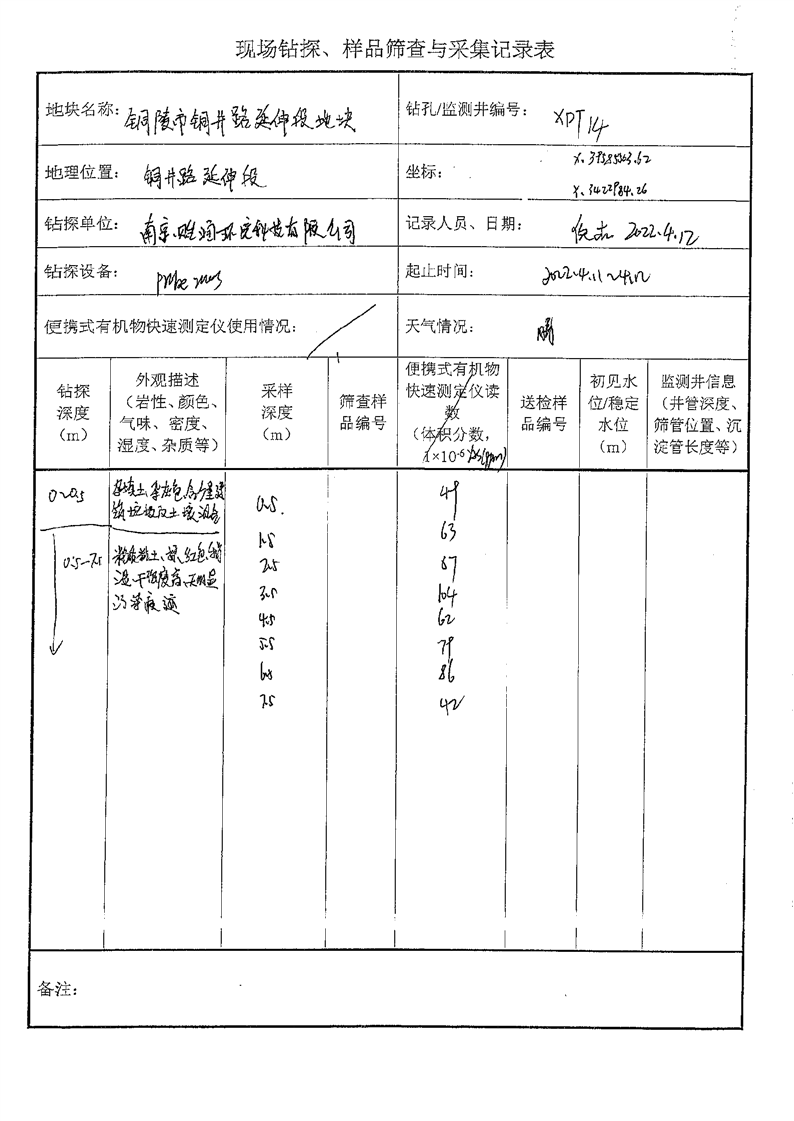 现场钻探、样品筛查与采集记录表
地块名称：铜陵市铜井路延伸段地块
钻孔/监测井编号：XPT14
地理位置：铜井路延伸段
坐标：
钻探单位：南京 环境科技有限公司
记录人员、日期： 2022.4.12
钻探设备：
起止时间：2022.4.11~4.12
便携式有机物快速测定仪使用情况：
天气情况：晴
钻探
深度
（m）
外观描述
（岩性、颜色、
气味、密度、
湿度、杂质等）
采样
深度
（m）
筛查样
品编号
便携式有机物
快速测定仪读
数
（体积分数，
1×10-6
送检样
品编号
初见水
位/稳定
水位
（m）
监测井信息
（井管深度、
筛管位置、沉
淀管长度等）
0~0.5
杂填土、杂灰色、含少量建
筑垃圾及土壤混合
0.5
49
1.5
63
0.5-7.5
粉质黏土、 红色、稍
湿、干强度高、无明显
污染痕迹
2.5
87
3.5
104
4.5
62
5.5
79
6.5
86
7.5
42
备注：